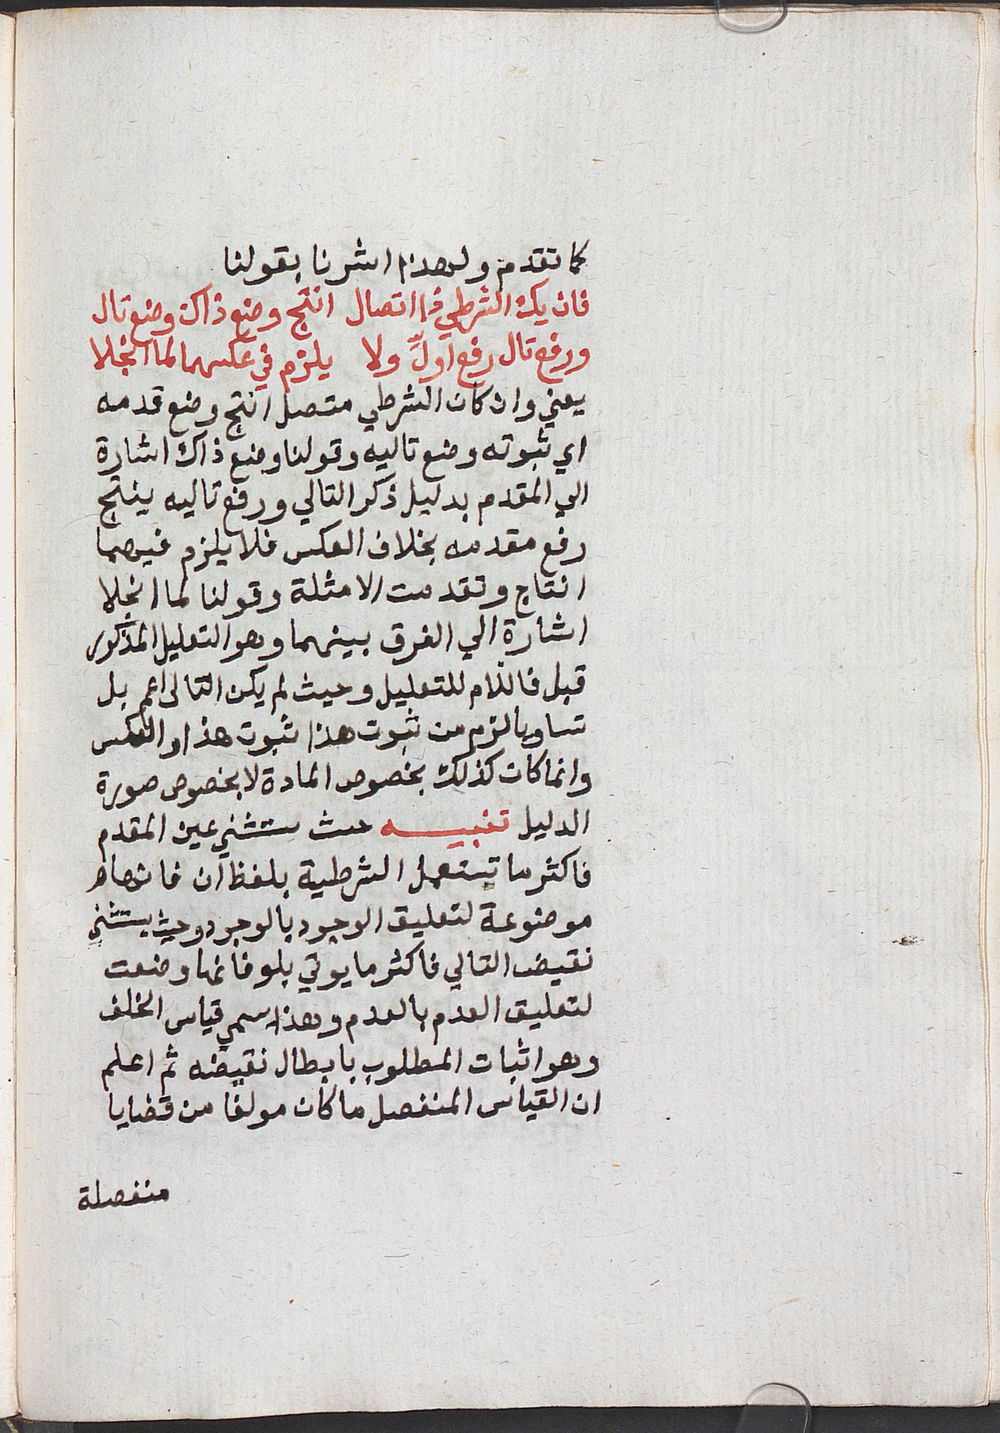 كما تقدم ولهذا اشرنا بقولنا
فان يك الشرطي ذا اتصال انتج وضع ذاك وضع تال
ورفع تال رفع اولٍّ ولا يلزم في عكسهما لما انجلا
يعني وان كان الشرطي متصل انتج وضع قدمه
اي ثبوته وضع تاليه وقولنا وضع ذاك اشارة
الي المقدم بدليل ذكر التالي ورفع تاليه ينتج
رفع مقدمه بخلاف العكس فلا يلزم فيهما
انتاج وتقدمت الامثلة وقولنا لما انجلا
اشارة الي الفرق بينهما وهو التعليل المذكور
قبل فاللام للتعليل وحيث لم يكن التالى اعم بل
تساويا لزم من ثبوت هذا ثبوت هذا والعكس
وانما كان كذلك بخصوص المادة لا بخصوص صورة
الدليل تنبيه حيث يستثني عين المقدم
فاكثر ما تستعمل الشرطية بلفظ ان فانها
موضوعة لتعليق الوجود بالوجود وحيث يستثني
نقيض التالي فاكثر ما يوتي بلو فانها وضعت
لتعليق العدم بالعدم وهذا يسمي قياس الخلف
وهو اثبات المطلوب بابطال نقيضه ثم اعلم
ان القياس المنفصل ما كان مولفا من قضايا
منفصلة